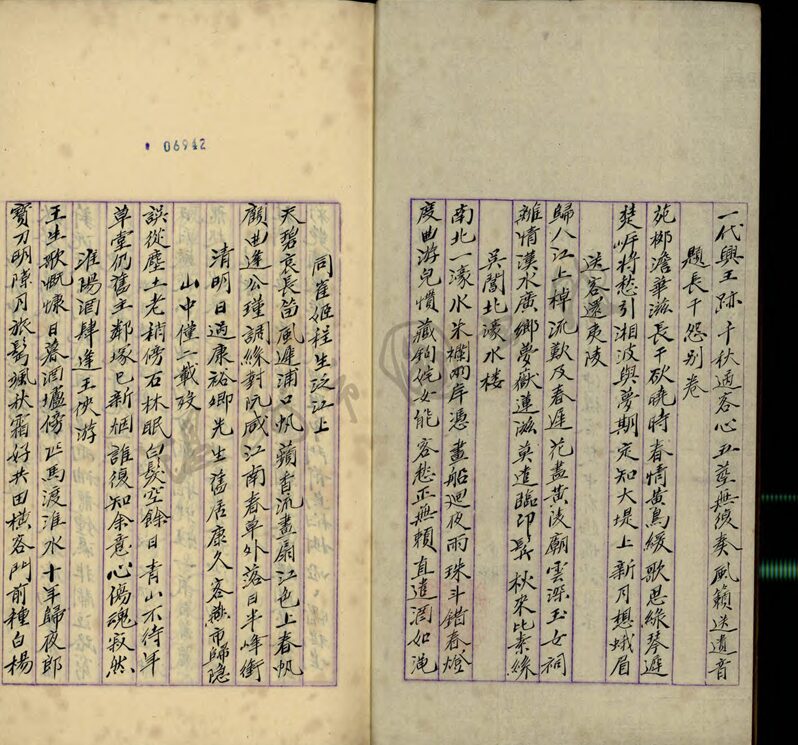 一代興王跡千秋過客心五莖無復奏風籟送遺音
題長干怨別卷
苑柳澹華滋長干欲曉時春情黃鳥緩歌思綠琴遲
楚岸將愁引湘波與夢期定知大堤上新月想蛾眉
送客還夷陵
歸人江上棹流歎及春遲花盡黃陵廟雲深玉女祠
離情漢水廣鄉夢嶽蓮滋莫遣臨邛髮秋來比素絲
吳閶北濠水樓
南北一濠水朱欄兩岸憑畫船迴夜雨珠斗錯春燈
度曲游兒慣藏鉤姹女能客愁正無賴直遣酒如澠
06942
同崔姬程生泛江上
天碧哀長笛風遲浦口帆蘋香流畫扇江色上春帆
顧曲逢公瑾調絲對阮咸江南春草外落日半峰銜
清明日過康裕卿先生舊居康久客燕市歸隱
山中僅二載歿
誤從塵土老稍傍石林眠白髮空餘日青山不待年
草堂仍舊主鄰塚已新烟誰復知余意心傷魂寂然
淮陽酒肆逢王俠游
王生歌慨慷日暮酒壚傍匹馬渡淮水十年歸夜郎
寶刀明隙月旅鬢颯秋霜好共田橫客門前種白楊